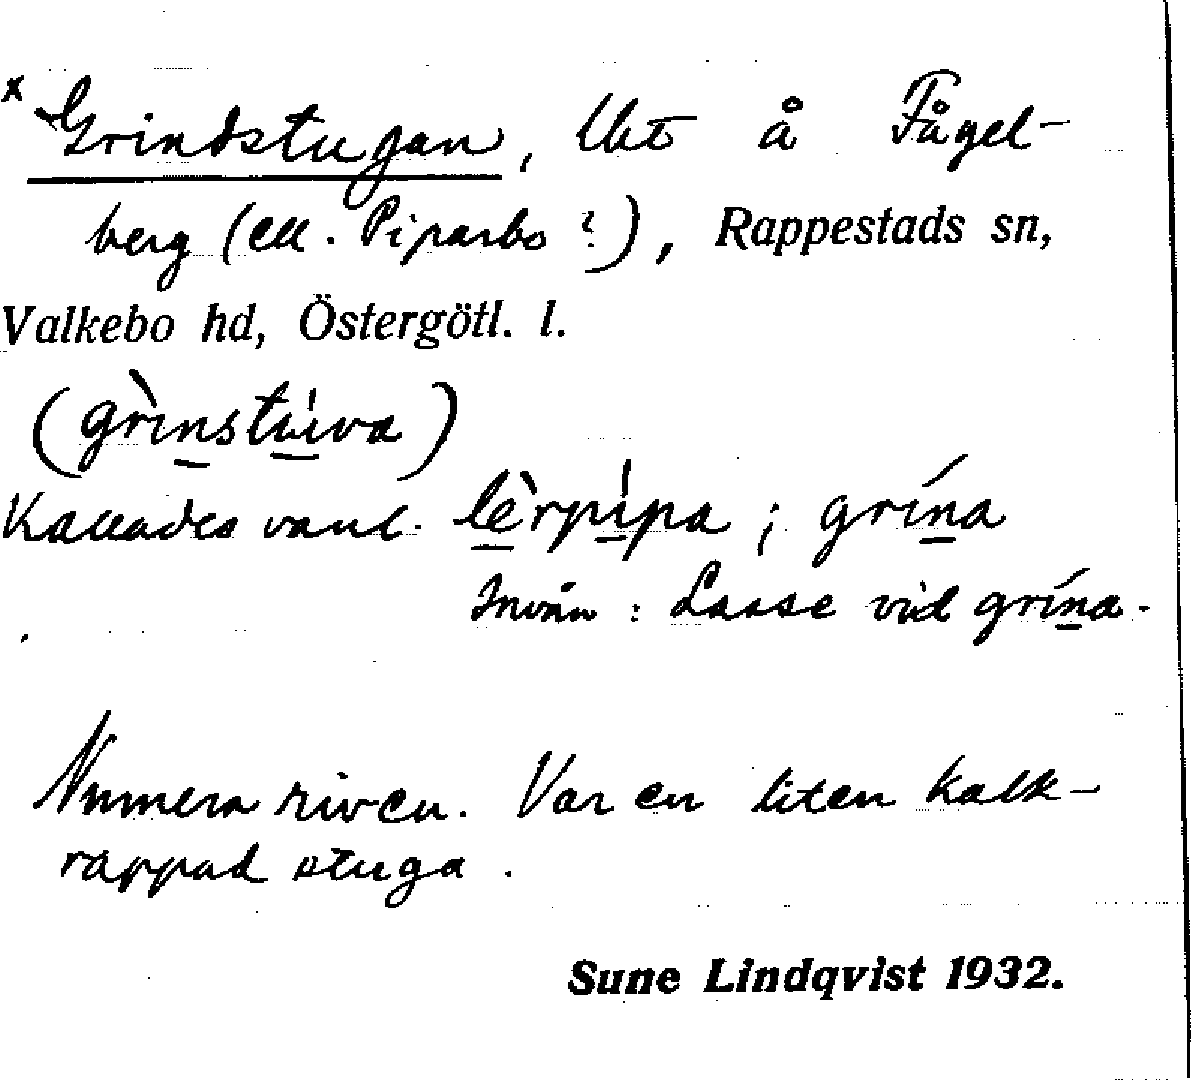 x Grindstugan, lht å Fågel-
berg (ell. Piparbo ?), Rappestads sn,
Valkebo hd, Östergötl. l.
(grìnstúva)
Kallades vanl. lèrpípa ; grína
Invån : Lasse vid grína.
Numera riven. Var en liten kalk-
rappad stuga .
Sune Lindqvist 1932.